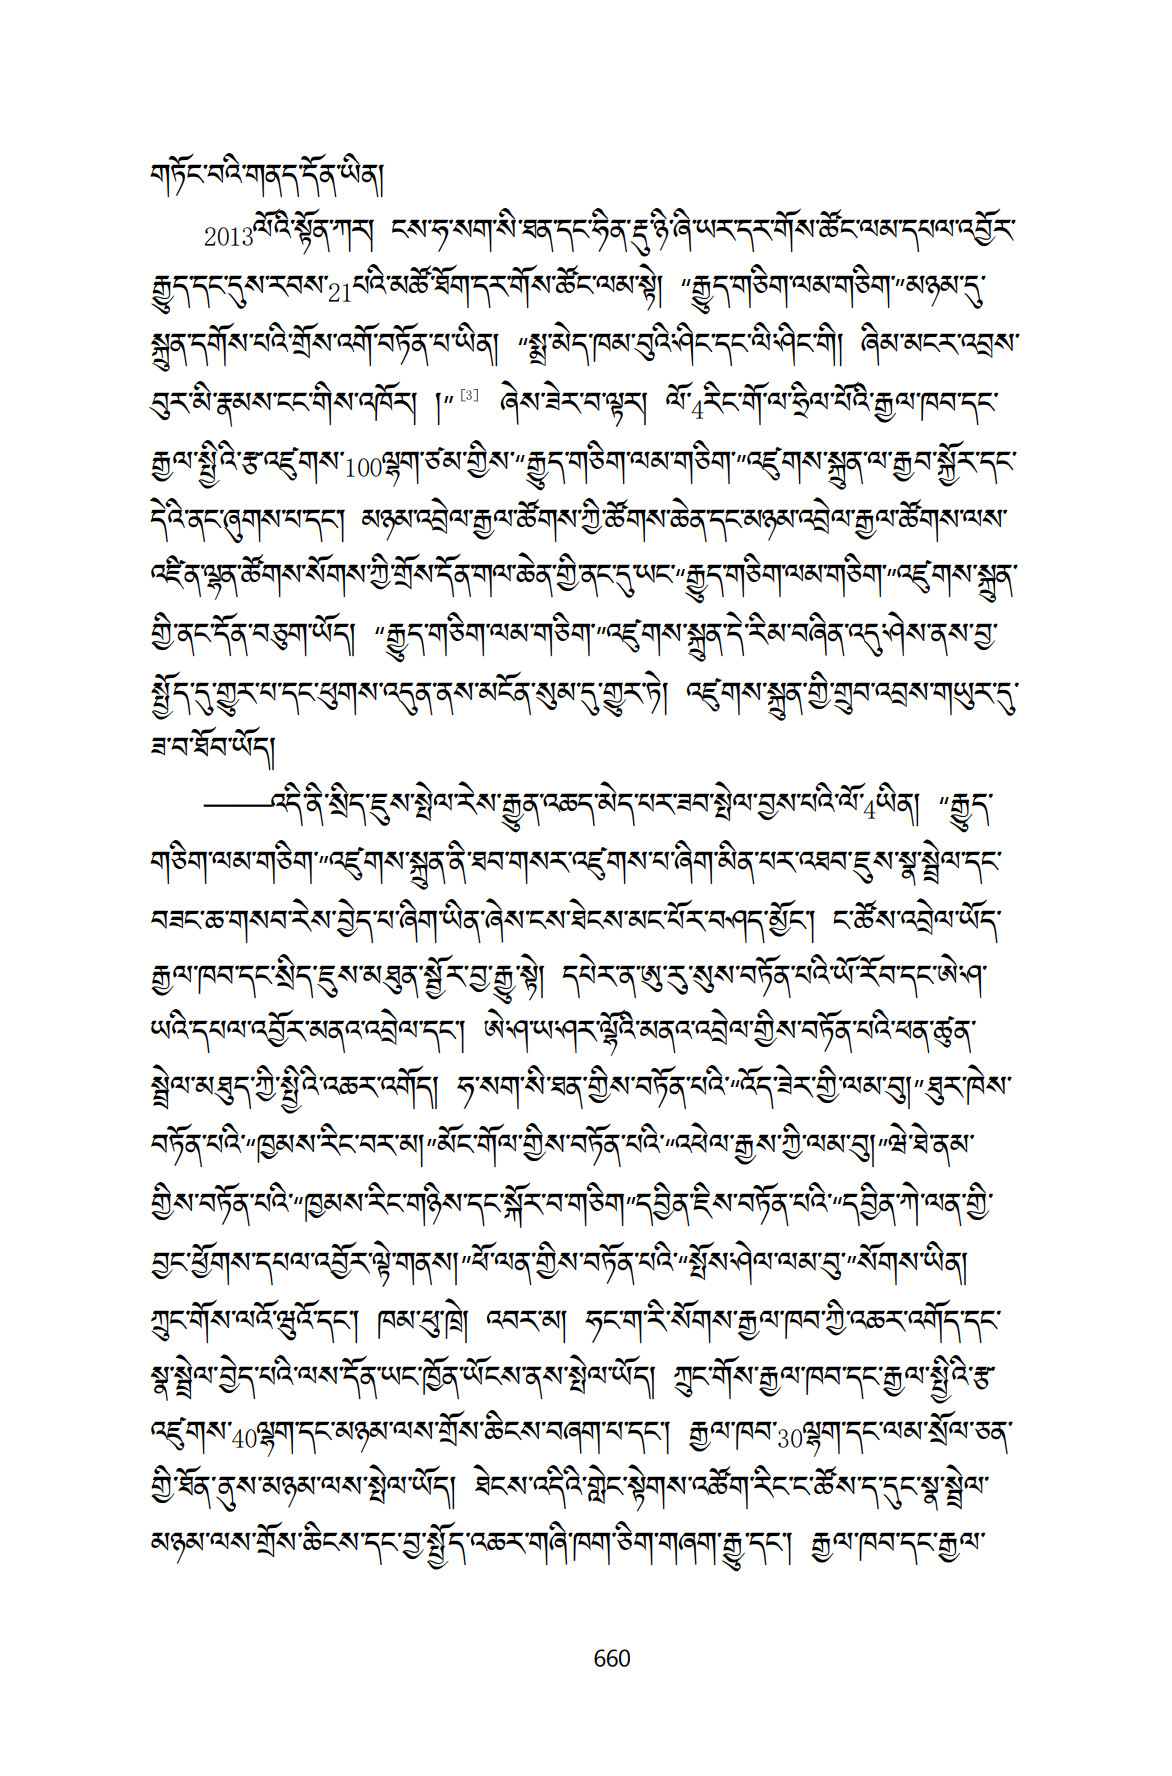 གཏོང་བའི་གནད་དོན་ཡིན།
2013ལོའི་སྟོན་ཀར། ངས་ཧ་སག་སི་ཐན་དང་ཧིན་རྡུ་ཉི་ཞི་ཡར་དར་གོས་ཚོང་ལམ་དཔལ་འབྱོར་
རྒྱུད་དང་དུས་རབས་21པའི་མཚོ་ཐོག་དར་གོས་ཚོང་ལམ་སྟེ། “རྒྱུད་གཅིག་ལམ་གཅིག་”མཉམ་དུ་
སྐྲུན་དགོས་པའི་གྲོས་འགོ་བཏོན་པ་ཡིན། “སྨྲ་མེད་ཁམ་བུའི་ཤིང་དང་ལི་ཤིང་གི། ཞིམ་མངར་འབྲས་
བུར་མི་རྣམས་ངང་གིས་འཁོར། །”[3] ཞེས་ཟེར་བ་ལྟར། ལོ་4རིང་གོ་ལ་ཧྲིལ་པོའི་རྒྱལ་ཁབ་དང་
རྒྱལ་སྤྱིའི་རྩ་འཛུགས་100ལྷག་ཙམ་གྱིས་“རྒྱུད་གཅིག་ལམ་གཅིག་”འཛུགས་སྐྲུན་ལ་རྒྱབ་སྐྱོར་དང་
དེའི་ནང་ཞུགས་པ་དང་། མཉམ་འབྲེལ་རྒྱལ་ཚོགས་ཀྱི་ཚོགས་ཆེན་དང་མཉམ་འབྲེལ་རྒྱལ་ཚོགས་ལས་
འཛིན་ལྷན་ཚོགས་སོགས་ཀྱི་གྲོས་དོན་གལ་ཆེན་གྱི་ནང་དུ་ཡང་“རྒྱུད་གཅིག་ལམ་གཅིག་”འཛུགས་སྐྲུན་
གྱི་ནང་དོན་བཅུག་ཡོད། “རྒྱུད་གཅིག་ལམ་གཅིག་”འཛུགས་སྐྲུན་དེ་རིམ་བཞིན་འདུ་ཤེས་ནས་བྱ་
སྤྱོད་དུ་གྱུར་པ་དང་ཕུགས་འདུན་ནས་མངོན་སུམ་དུ་གྱུར་ཏེ། འཛུགས་སྐྲུན་གྱི་གྲུབ་འབྲས་གཡུར་དུ་
ཟ་བ་ཐོབ་ཡོད།
———འདི་ནི་སྲིད་ཇུས་སྤེལ་རེས་རྒྱུན་འཆད་མེད་པར་ཟབ་སྤེལ་བྱས་པའི་ལོ་4ཡིན། “རྒྱུད་
གཅིག་ལམ་གཅིག་”འཛུགས་སྐྲུན་ནི་ཐབ་གསར་འཛུགས་པ་ཞིག་མིན་པར་འཐབ་ཇུས་སྣ་སྦྲེལ་དང་
བཟང་ཆ་གསབ་རེས་བྱེད་པ་ཞིག་ཡིན་ཞེས་ངས་ཐེངས་མང་པོར་བཤད་མྱོང་། ང་ཚོས་འབྲེལ་ཡོད་
རྒྱལ་ཁབ་དང་སྲིད་ཇུས་མཐུན་སྦྱོར་བྱ་རྒྱུ་སྟེ། དཔེར་ན་ཨུ་རུ་སུས་བཏོན་པའི་ཡོ་རོབ་དང་ཨེ་ཤ་
ཡའི་དཔལ་འབྱོར་མནའ་འབྲེལ་དང་། ཨེ་ཤ་ཡ་ཤར་ལྷོའི་མནའ་འབྲེལ་གྱིས་བཏོན་པའི་ཕན་ཚུན་
སྦྲེལ་མཐུད་ཀྱི་སྤྱིའི་འཆར་འགོད། ཧ་སག་སི་ཐན་གྱིས་བཏོན་པའི་“འོད་ཟེར་གྱི་ལམ་བུ།”ཐུར་ཁེས་
བཏོན་པའི་“ཁྱམས་རིང་བར་མ།”མོང་གོལ་གྱིས་བཏོན་པའི་“འཕེལ་རྒྱས་ཀྱི་ལམ་བུ།”ཝེ་ཐེ་ནམ་
གྱིས་བཏོན་པའི་“ཁྱམས་རིང་གཉིས་དང་སྐོར་བ་གཅིག་”དབྱིན་ཇིས་བཏོན་པའི་“དབྱིན་ཀེ་ལན་གྱི་
བྱང་ཕྱོགས་དཔལ་འབྱོར་ལྟེ་གནས།”ཕོ་ལན་གྱིས་བཏོན་པའི་“སྤོས་ཤེལ་ལམ་བུ་”སོགས་ཡིན།
ཀྲུང་གོས་ལའོ་ཝུའོ་དང་། ཁམ་ཕུ་ཁྲེ། འབར་མ། ཧང་ག་རི་སོགས་རྒྱལ་ཁབ་ཀྱི་འཆར་འགོད་དང་
སྣ་སྦྲེལ་བྱེད་པའི་ལས་དོན་ཡང་ཁྱོན་ཡོངས་ནས་སྤེལ་ཡོད། ཀྲུང་གོས་རྒྱལ་ཁབ་དང་རྒྱལ་སྤྱིའི་རྩ་
འཛུགས་40ལྷག་དང་མཉམ་ལས་གྲོས་ཆིངས་བཞག་པ་དང་། རྒྱལ་ཁབ་30ལྷག་དང་ལམ་སྲོལ་ཅན་
གྱི་ཐོན་ནུས་མཉམ་ལས་སྤེལ་ཡོད། ཐེངས་འདིའི་གླེང་སྟེགས་འཚོག་རིང་ང་ཚོས་ད་དུང་སྣ་སྦྲེལ་
མཉམ་ལས་གྲོས་ཆིངས་དང་བྱ་སྤྱོད་འཆར་གཞི་ཁག་ཅིག་གཞག་རྒྱུ་དང་། རྒྱལ་ཁབ་དང་རྒྱལ་
660